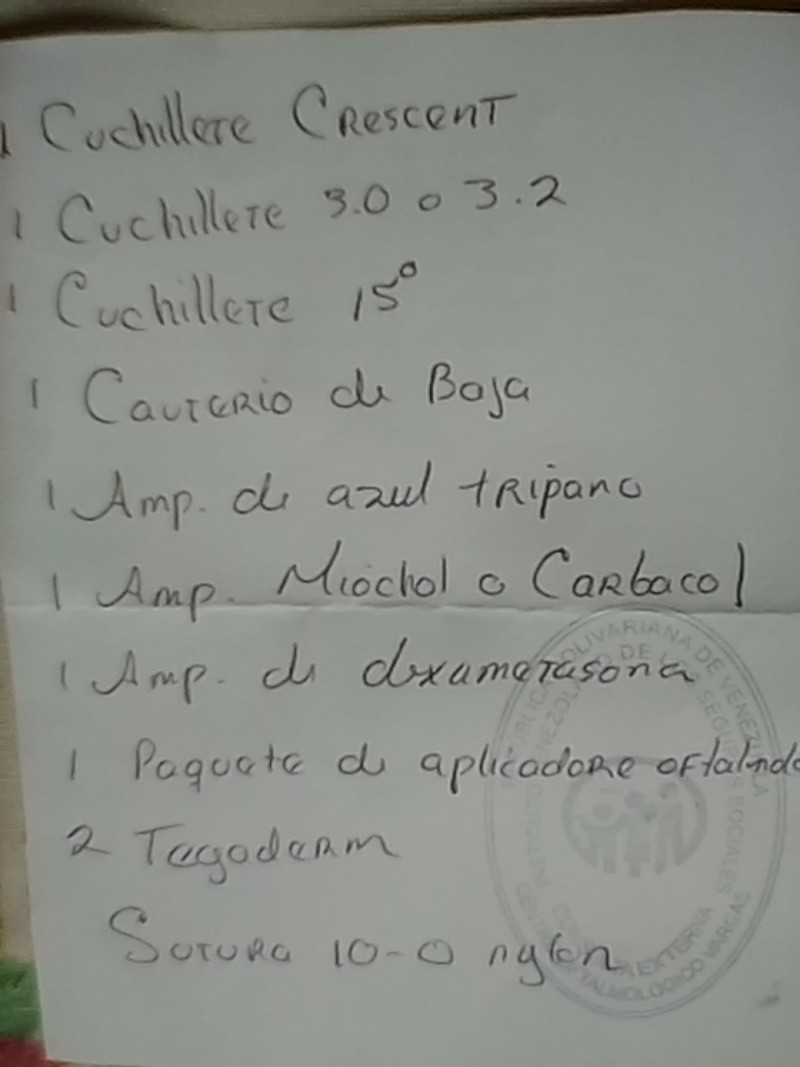 1 Cuchillete Crescent
1 Cuchillete 3.0 o 3.2
1 Cuchillete 15°
1 Cauterio de Baja
1 Amp. de azul tripano
1 Amp. Miochol o Carbacol
1 Amp. de dexametasona
1 Paquete de aplicadore oftalmolo
2 Tegoderm
Sutura 10-0 nylon
REPÚBLICA BOLIVARIANA DE VENEZUELA
INSTITUTO VENEZOLANO DE LOS SEGUROS SOCIALES
CONSULTA EXTERNA
CENTRO OFTALMOLÓGICO VARGAS